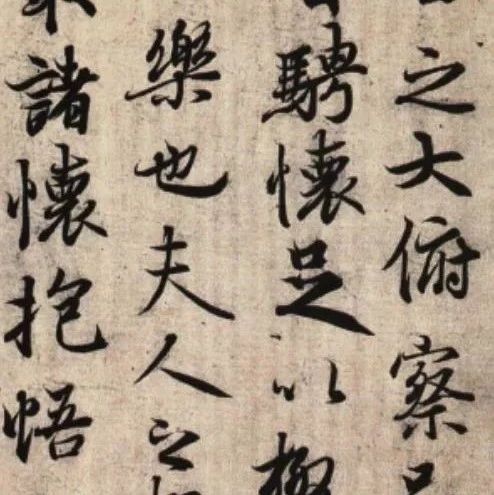 之大俯察
騁懷足以極
樂也夫人之
諸懷抱悟